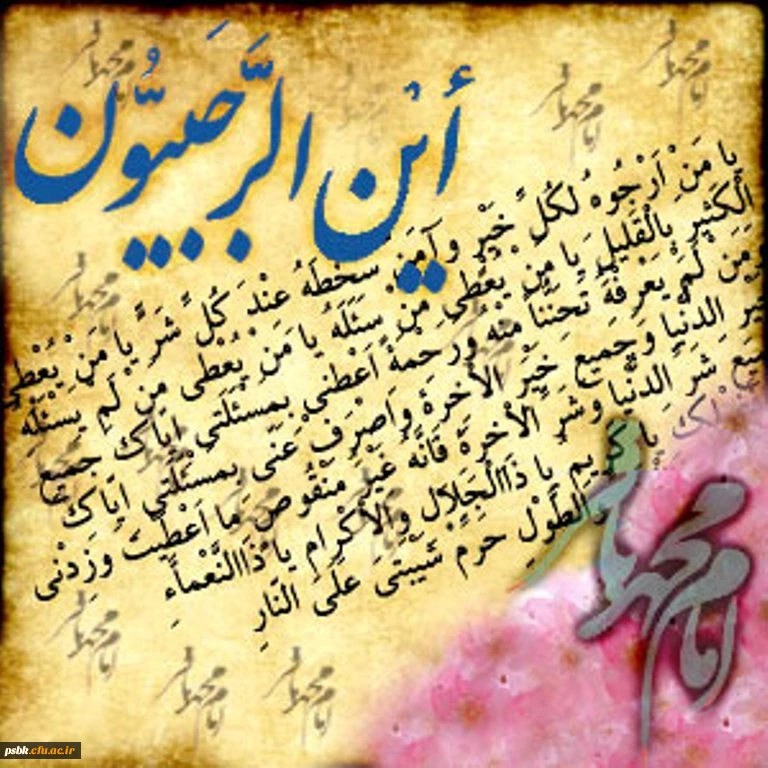 أَيْنَ الرَّجَبِيُّون
يا مَنْ اَرْجُوهُ لِكُلِّ خَيْرٍ وَآمَنُ سَخَطَهُ عِنْدَ كُلِّ شَرٍّ يا مَنْ يُعْطِي
الْكَثيرَ بِالْقَليلِ يا مَنْ يُعْطي مَنْ سَئَلَهُ يا مَنْ يُعْطى مَنْ لَمْ يَسْئَلْهُ
مَنْ لَمْ يَعْرِفْهُ تَحَنُّناً مِنْهُ وَرَحْمَةً اَعْطِنى بِمَسْئَلَتي اِيّاكَ جَميعَ
خَيْرِ الدُّنْيا وَجَميعَ خَيْرِ الاْخِرَةِ وَاصْرِفْ عَنّى بِمَسْئَلَتي اِيّاكَ
جَميعَ شَرِّ الدُّنْيا وَشَرِّ الاْخِرَةِ فَاِنَّهُ غَيْرُ مَنْقُوصٍ ما اَعْطَيْتَ وَزِدْنى
يا كَريمُ يا ذَاالْجَلالِ وَالاْكْرامِ يا ذَاالنَّعْماَّءِ
وَالطَّوْلِ حَرِّمْ شَيْبَتى عَلَى النّارِ
امام محمد باقر
psbk.cfu.ac.ir